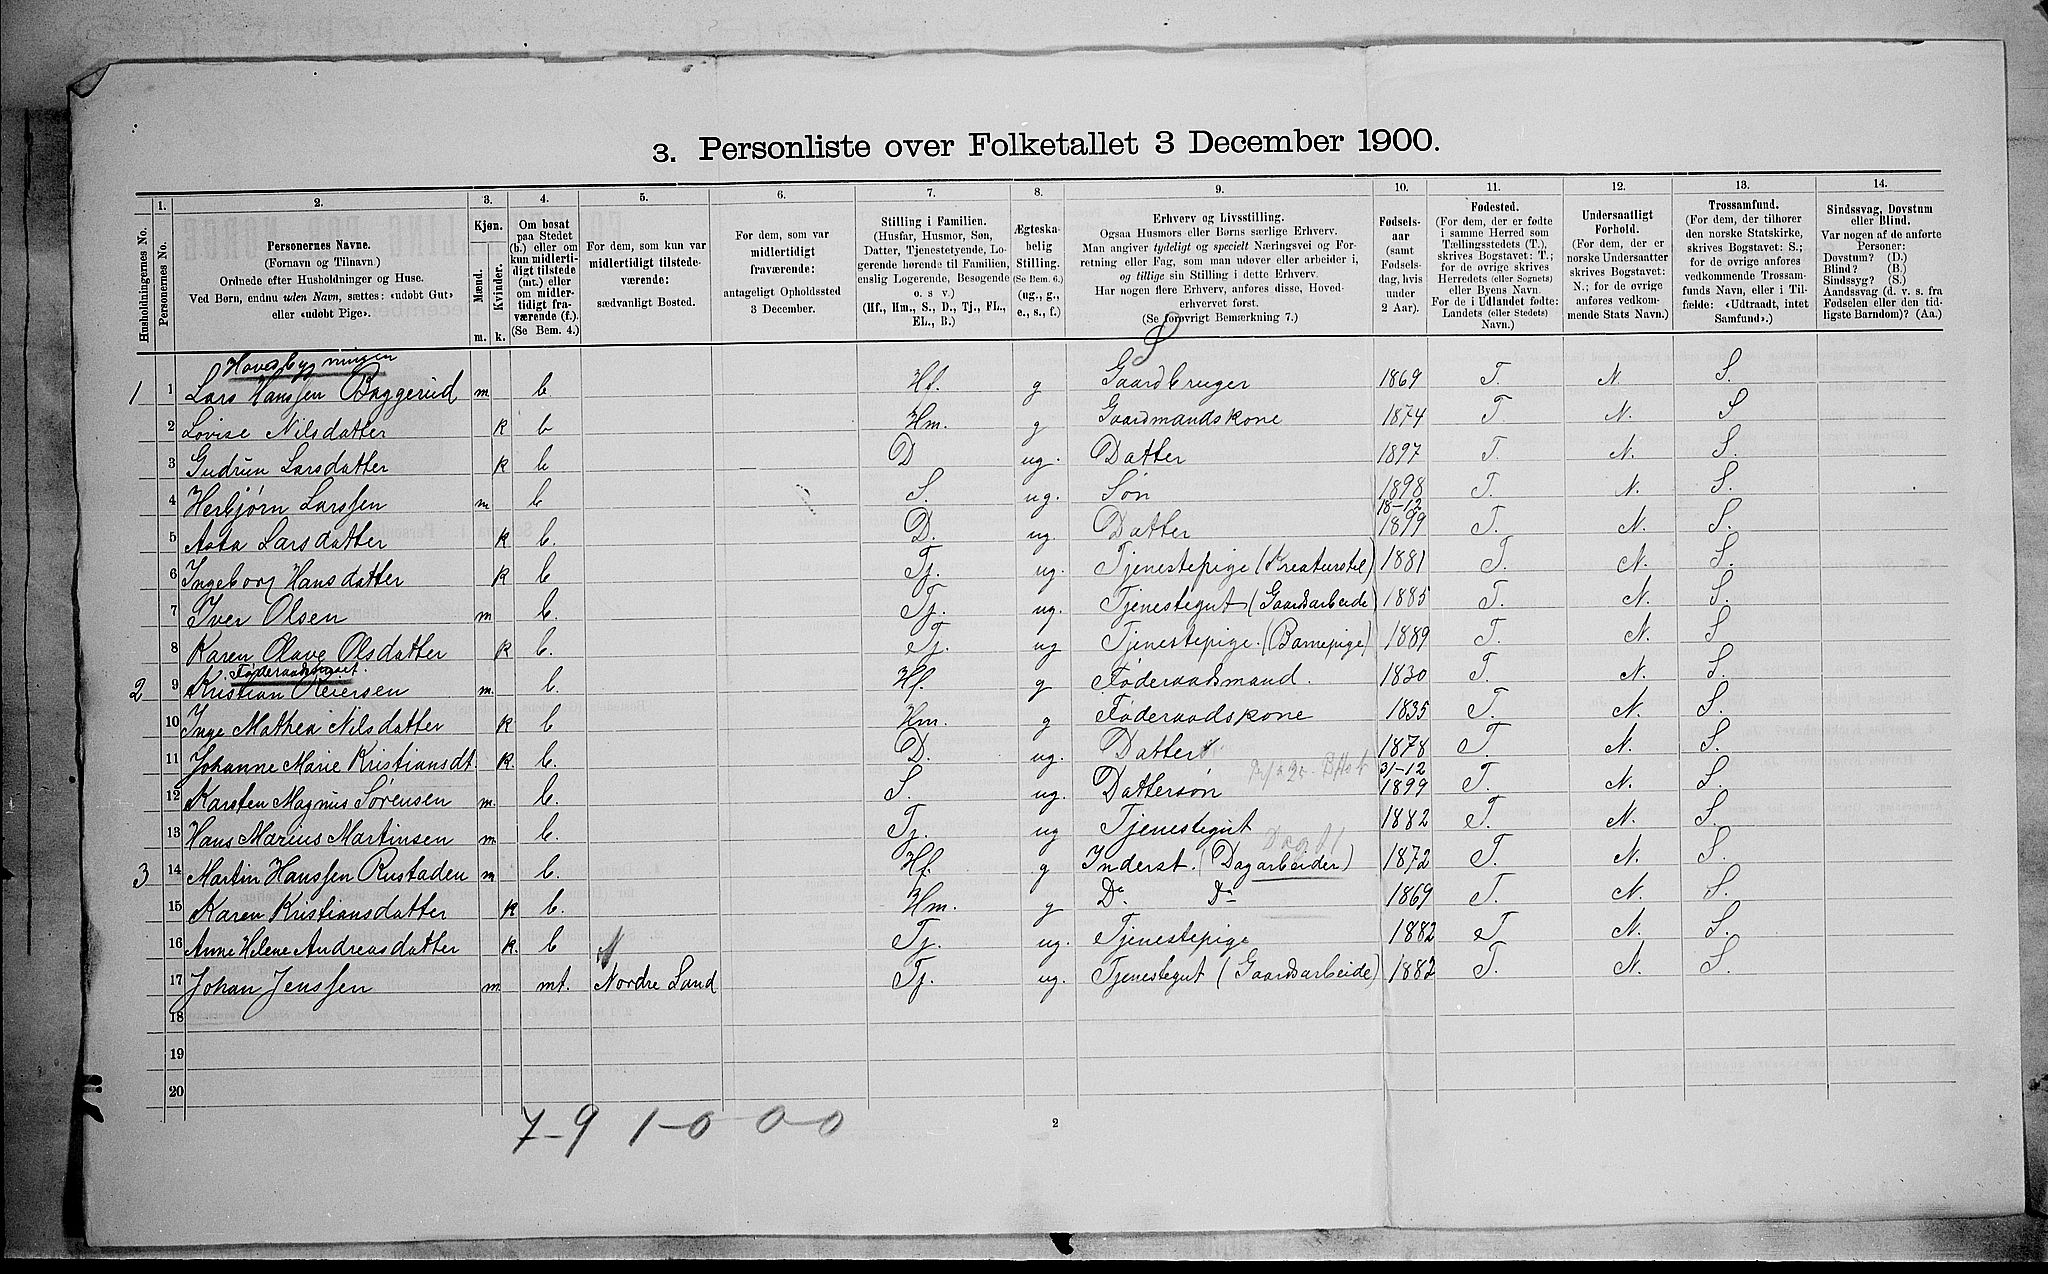 3. Personliste over Folketallet 3 December 1900.
1. 2. 3. 4. 5. 6. 7. 8. 9. 10. 11. 12. 13. 14.
Husholdningernes No.
Personernes No.
Personernes Navne.
(Fornavn og Tilnavn.)
Ordnede efter Husholdninger og Huse.
Ved Børn, endnu uden Navn, sættes: «udøbt Gut»
eller «udøbt Pige».
Kjøn.
Mænd.
Kvinder.
m. k.
Om bosat
paa Stedet
(b.) eller om
kun midlerti-
digt tilstede
(mt.) eller
om midler-
tidigt fra-
værende (f.).
(Se Bem. 4.)
For dem, som kun var
midlertidigt tilstede-
værende:
sædvanligt Bosted.
For dem, som var
midlertidigt
fraværende:
antageligt Opholdssted
3 December.
Stilling i Familien.
(Husfar, Husmor, Søn,
Datter, Tjenestetyende, Lo-
gerende hørende til Familien,
enslig Logerende, Besøgende
o. s v.)
(Hf., Hm., S., D., Tj., FL.,
EL., B.)
Ægteska-
belig
Stilling.
(Se Bem. 6.)
(ug., g.,
e., s., f.)
Erhverv og Livsstilling.
Ogsaa Husmors eller Børns særlige Erhverv.
Man angiver tydeligt og specielt Næringsvei og For-
retning eller Fag, som man udøver eller arbeider i,
og tillige sin Stilling i dette Erhverv.
Har nogen flere Erhverv, anføres disse, Hoved-
erhvervet først.
(Se forøvrigt Bemærkning 7.)
Fødsels-
aar
(samt
Fødsels-
dag, hvis
under
2 Aar).
Fødested.
(For dem, der er fødte
i samme Herred som
Tællingsstedets (T.),
skrives Bogstavet: T.;
for de øvrige skrives
Herredets (eller Sognets)
eller Byens Navn.
For de i Udlandet fødte:
Landets (eller Stedets)
Navn.)
Undersaatligt
Forhold.
(For dem, der er
norske Undersaatter
skrives Bogstavet:
N.; for de øvrige
anføres vedkom-
mende Stats Navn.)
Trossamfund.
(For dem, der tilhører
den norske Statskirke,
skrives Bogstavet: S.;
for de øvrige anføres
vedkommende Trossam-
funds Navn, eller i Til-
fælde: «Udtraadt, intet
Samfund».)
Sindssvag, Døvstum
eller Blind.
Var nogen af de anførte
Personer:
Døvstum? (D.)
Blind? (B.)
Sindssyg? (S.)
Aandssvag (d. v. s. fra
Fødselen eller den tid-
ligste Barndom)? (Aa.)
Hovedbygningen
1 1 Lars Hanssen Baggerud m b Hf. g Gaardbruger 1869 T. N. S.
2 Lovise Nilsdatter k b Hm. g Gaardmandskone 1874 T N. S
3 Gudrun Larsdatter k b D ug. Datter 1897 T. N. S.
4 Herbjørn Larssen m b S. ug. Søn 1898 T. N. S.
5 Asta Larsdatter k b. D. ug. Datter 18-12 1899 T. N. S.
6 Ingeborg Hansdatter k b Tj. ug. Tjenestepige (Kreaturstel) 1881 T. N. S.
7 Iver Olsen m b. Tj. ug. Tjenestegut (Gaardsarbeide) 1885 T. N. S.
8 Karen Olave Olsdatter k b. Tj. ug Tjenestepige. (Barnepige) 1889 T. N. S
2 9 Kristian Reiersen m. b. Hf. g Føderaadsmand. 1830 T. N. S.
10 Inge Mathea Nilsdatter k b Hm. g Føderaadskone 1835 T. N. S.
11 Johanne Marie Kristiansdt. k. b. D. ug. Datter 1878 T N. S.
12 Karsten Magnus Sørensen m. b. S. ug. Dattersøn 31-12 1899 T. N. S.
13 Hans Marius Martinsen m b. Tj. ug Tjenestegut 1882 T. N. S.
3 14 Martin Hanssen Rustaden m b. Hf. g Inderst. (Dagarbeider) 1872 T. N. S.
15 Karen Kristiansdatter k b. Hm. g Do. Do 1869 T. N. S.
16 Anne Helene Andreasdatter k. b Tj. ug. Tjenestepige 1882 T N. S.
17 Johan Jenssen m mt. Nordre Land Tj. ug. Tjenestegut (Gaardsarbeide) 1882 T. N. S.
18
19
20
7-9 1-0 0-0
2